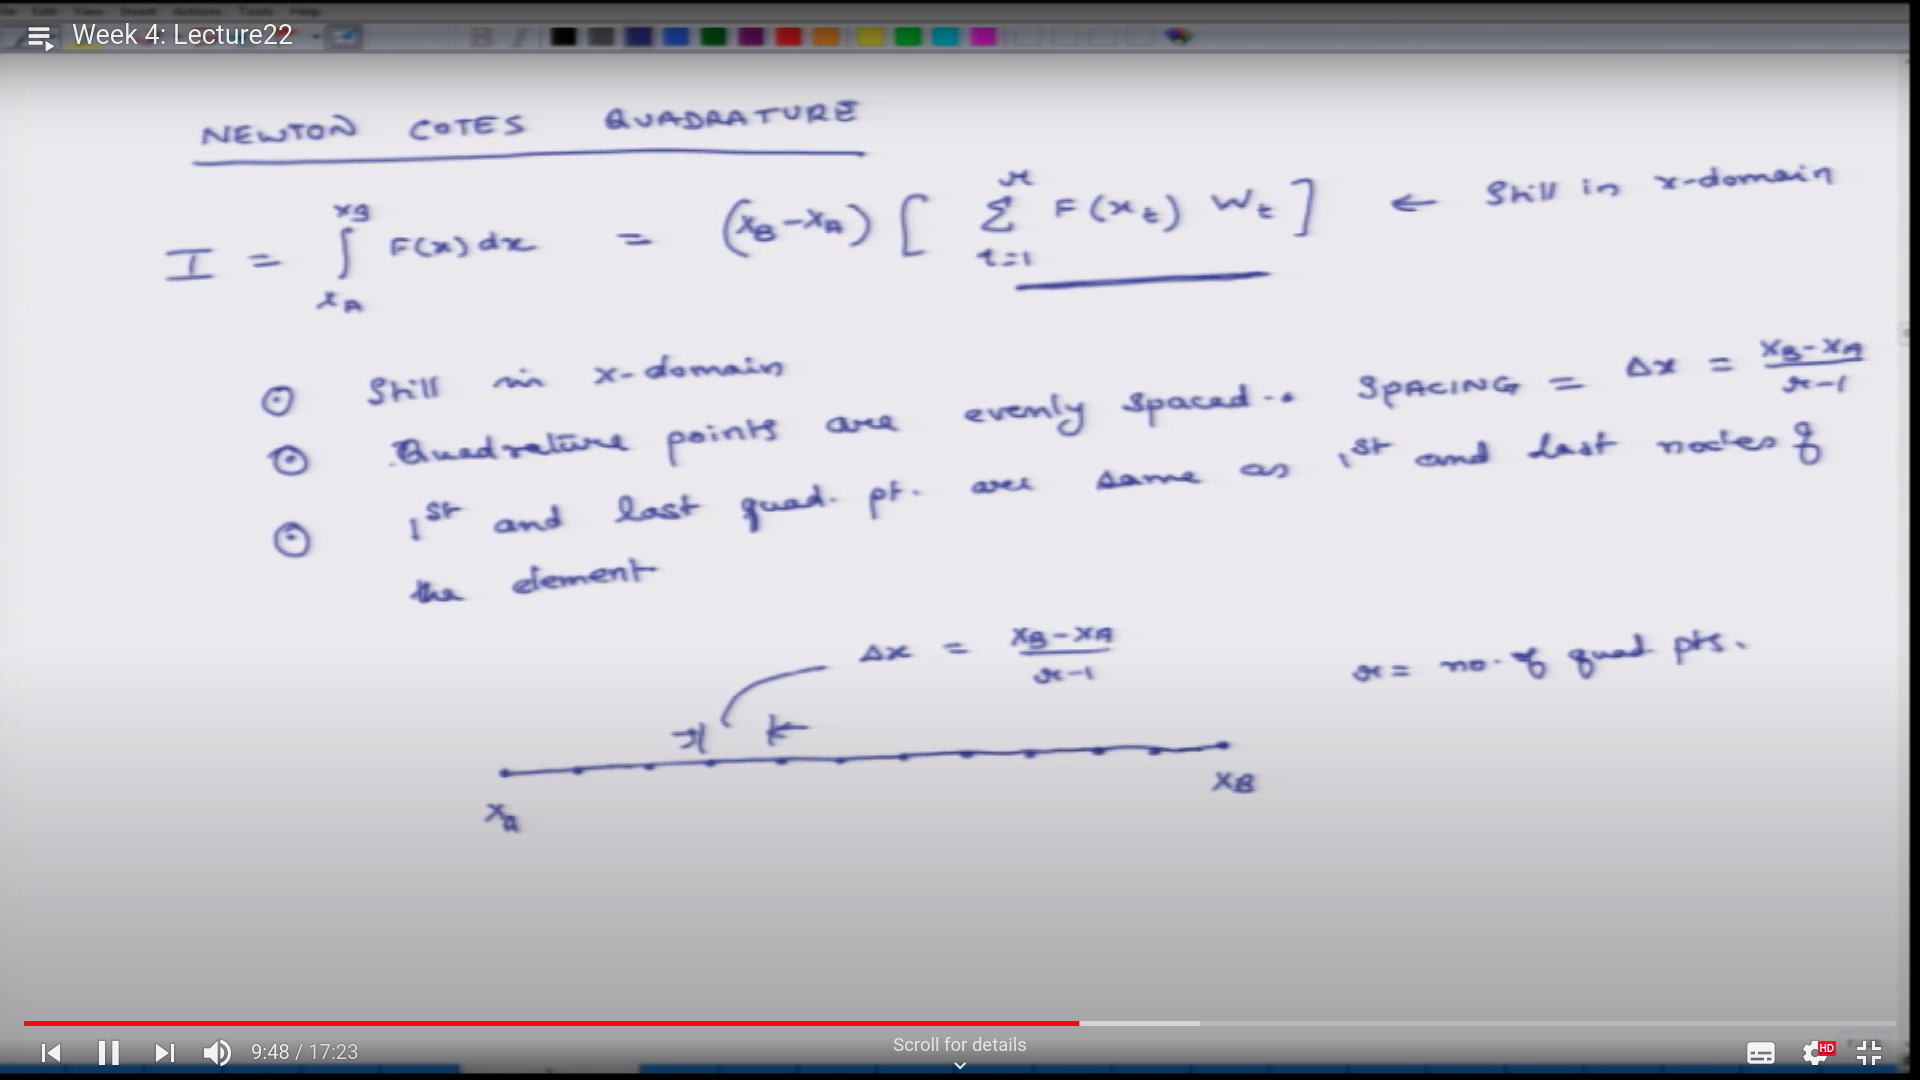 File Edit View Insert Actions Tools Help
Week 4: Lecture22
NEWTON COTES QUADRATURE
I = ∫_{x_A}^{x_B} F(x) dx = (x_B - x_A) [ Σ_{t=1}^{r} F(x_t) W_t ] ← Still in x-domain
⊙ Still in x-domain
⊙ Quadrature points are evenly spaced.. SPACING = Δx = (x_B - x_A)/(r-1)
⊙ 1st and last quad. pt. are same as 1st and last nodes of
the element
Δx = (x_B - x_A)/(r-1)
r = no. of quad pts.
x_A
x_B
9:48 / 17:23
Scroll for details
HD